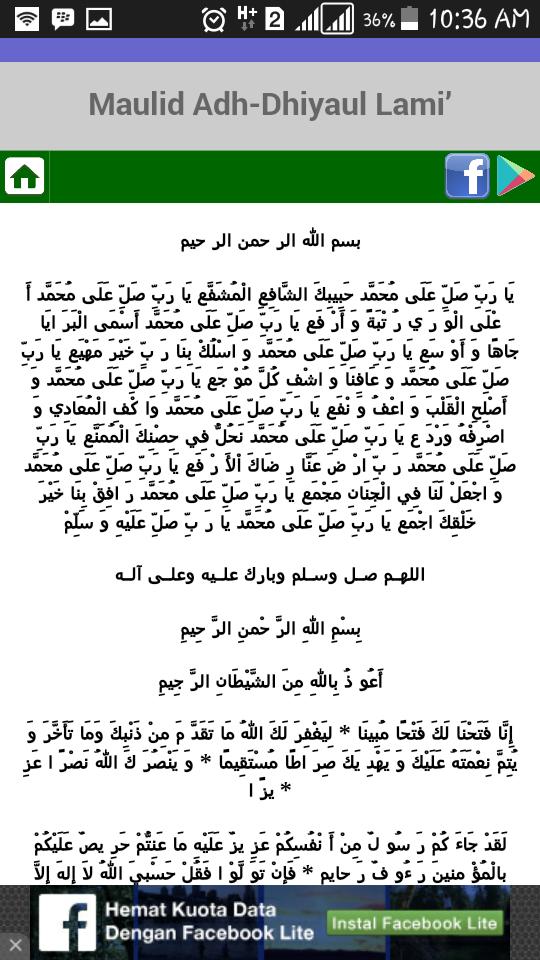 H+
2
36%
10:36 AM
Maulid Adh-Dhiyaul Lami’
f
بسم الله الر حمن الر حيم
يَا رَبِّ صَلِّ عَلَى مُحَمَّد حَبِيبِكَ الشَّافِعِ الْمُشَفَّع يَا رَبِّ صَلِّ عَلَى مُحَمَّد أَ
عْلَى الْوَ رَ ي رُ تْبَةً وَ أَرْ فَع يَا رَبِّ صَلِّ عَلَى مُحَمَّد أَسْمَى الْبَرَ ايَا
جَاهًا وَ أَوْ سَع يَا رَبِّ صَلِّ عَلَى مُحَمَّد وَ اسْلُكْ بِنَا رَ بِّ خَيْرَ مَهْيَع يَا رَبِّ
صَلِّ عَلَى مُحَمَّد وَ عَافِنَا وَ اشْفِ كُلَّ مُوْ جَع يَا رَبِّ صَلِّ عَلَى مُحَمَّد وَ
أَصْلِحِ الْقَلْبَ وَ اعْفُ وَ نْفَع يَا رَبِّ صَلِّ عَلَى مُحَمَّد وَا كْفِ الْمُعَادِي وَ
اصْرِفْهُ وَرْدَ ع يَا رَبِّ صَلِّ عَلَى مُحَمَّد نَحُلُّ فِي حِصْنِكَ الْمُمَنَّع يَا رَبِّ
صَلِّ عَلَى مُحَمَّد رَ بِّ ارْ ضَ عَنَّا رِ ضَاكَ اْلأَ رْ فَع يَا رَبِّ صَلِّ عَلَى مُحَمَّد
وَ اجْعَلْ لَنَا فِي الْجِنَانِ مَجْمَع يَا رَبِّ صَلِّ عَلَى مُحَمَّد رَ افِقْ بِنَا خَيْرَ
خَلْقِكَ اجْمَع يَا رَبِّ صَلِّ عَلَى مُحَمَّد يَا رَ بِّ صَلِّ عَلَيْهِ وَ سَلِّمْ
اللهـم صـل وسـلم وبارك علـيه وعلـى آلـه
بِسْمِ اللهِ الرَّ حْمنِ الرَّ حِيمِ
أَعُو ذُ بِاللهِ مِنَ الشَّيْطَانِ الرَّ جِيمِ
إِنَّا فَتَحْنَا لَكَ فَتْحًا مُبِينَا * لِيَغْفِرَ لَكَ اللهُ مَا تَقَدَّ مَ مِنْ ذَنْبِكَ وَمَا تَأَخَّرَ وَ
يُتِمَّ نِعْمَتَهُ عَلَيْكَ وَ يَهْدِ يَكَ صِرَ اطًا مُسْتَقِيمًا * وَ يَنْصُرَ كَ اللهُ نَصْرً ا عَزِ
* يزً ا
لَقَدْ جَاءَ كُمْ رَ سُو لٌ مِنْ أَ نْفُسِكُمْ عَزِ يزٌ عَلَيْهِ مَا عَنِتُّمْ حَرِ يصٌ عَلَيْكُمْ
بِالْمُؤْ مِنِينَ رَ ءُو فٌ رَ حايم * فَإِنْ تَوَ لَّوْ ا فَقُلْ حَسْبِيَ اللهُ لاَ إِلهَ إِلاَّ
f
Hemat Kuota Data
Dengan Facebook Lite
Instal Facebook Lite